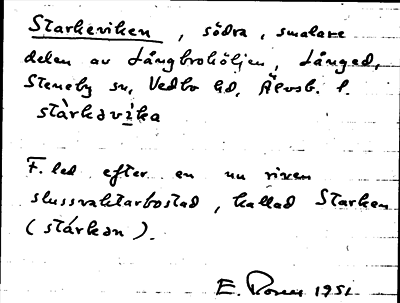 Starkeviken, södra, smalare
delen av Långbrohöljen, Långed,
Steneby sn, Vedbo hd, Älvsb. l.
stàrkavi̱ka
F. led efter en nu riven
slussvaktarbostad, kallad Starken
(stárkan).
E. 1951